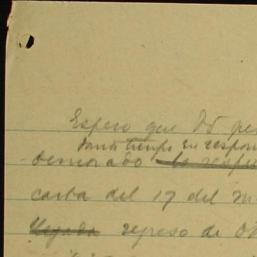 Espero que Vd pe
tanto tiempo en respon
demorado la respu
carta del 17 del m
llegada regreso de